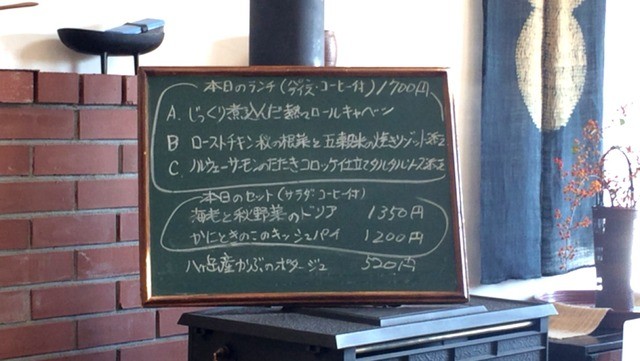 本日のランチ(パン又はライス・コーヒー付)1700円
A. じっくり煮込んだ熱々ロールキャベツ
B ローストチキン秋の根菜と五穀米の焼きリゾット添え
C. ノルウェーサーモンのたたきコロッケ仕立てタルタルソース添え
本日のセット(サラダ・コーヒー付)
海老と秋野菜のドリア 1350円
かにときのこのキッシュパイ 1200円
八ヶ岳産かぶのポタージュ 520円